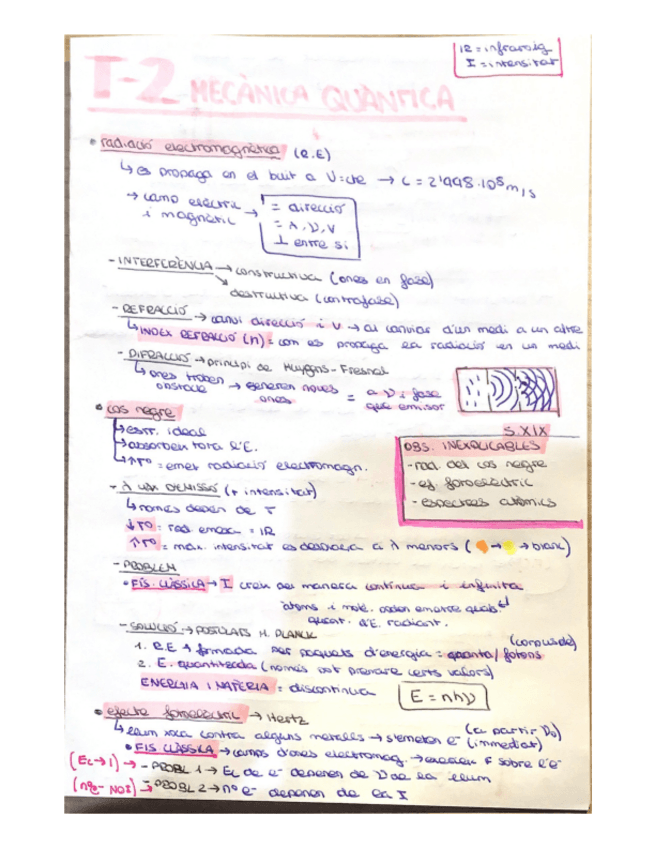 IR = infraroig
I = intensitat
T-2 MECÀNICA QUÀNTICA
• radiació electromagnètica (R.E)
↳ es propaga en el buit a V=cte → c = 2'998·10⁸ m/s
→ camp elèctric i magnètic →
= direcció
= λ, ν, v
⊥ entre si
- INTERFERÈNCIA → constructiva (ones en fase)
↘ destructiva (contrafase)
- REFRACCIÓ → canvi direcció i V → al canviar d'un medi a un altre
↳ INDEX REFRACCIÓ (n) = com es propaga la radiació en un medi
- DIFRACCIÓ → principi de Huygens-Fresnel
↳ ones troben obstacle → generen noves ones = a ν i fase que emisor
• cos negre
↳ estr. ideal
↳ absorbeix tota l'E.
↳ ↑Tº = emet radiació electromagn.
S.XIX
OBS. INEXPLICABLES
- rad. del cos negre
- ef. fotoelèctric
- espectres atòmics
- λ (+ intensitat)
↳ només depèn de T
↓Tº = rad. emesa = IR
↑Tº = max. intensitat es desplaça a λ menors ( → → blanc)
- PROBLEM
• FÍS. CLÀSSICA → I creix de manera contínua i infinita
àtoms i molè. poden emetre quals quant. d'E. radiant.
- SOLUCIÓ → POSTULATS M. PLANCK
(corpuscle)
1. R.E → formada per paquets d'energia = quanta / fotons
2. E. quantitzada (només pot prendre certs valors)
ENERGIA I MATERIA = discontinua
E = nhν
• efecte fotoelèctric → Hertz
↳ llum xoca contra alguns metalls → s'emeten e⁻ (a partir ν₀) (immediat)
• FIS CLÀSSICA → camps d'ones electromag. → exercien F sobre l'e⁻
(Ec→I) → - PROBL 1 → Ec de e⁻ depenen de ν de la llum
- PROBL 2 → nº e⁻ depenen de la I